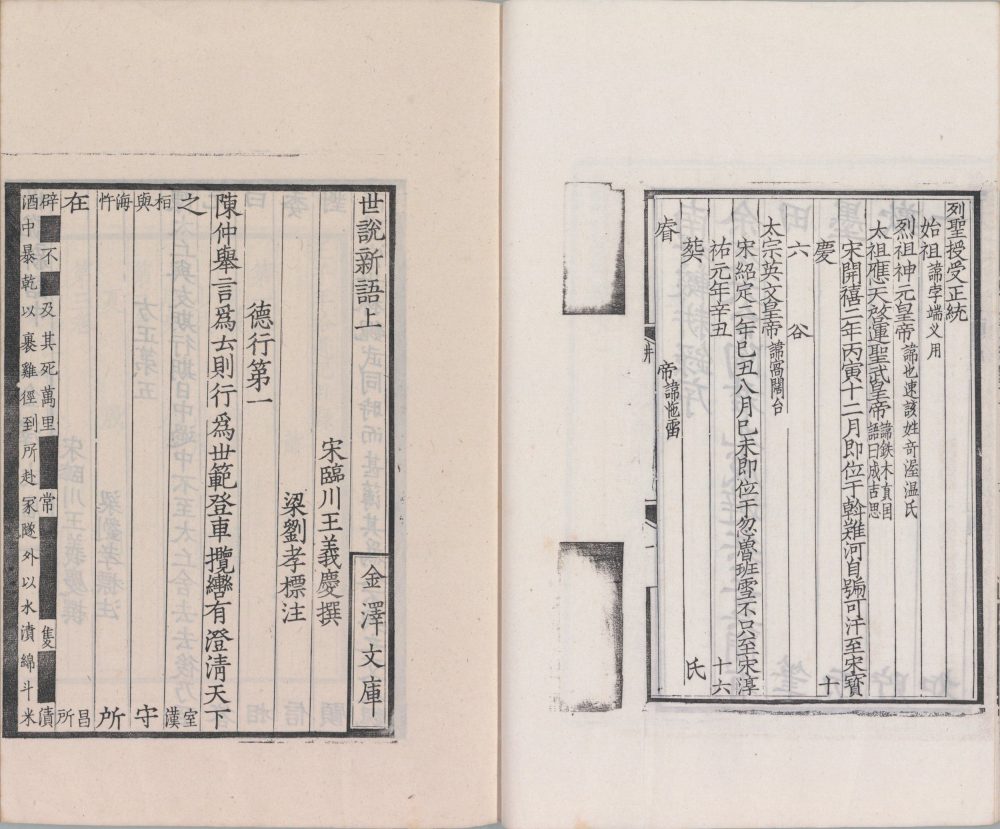 列聖授受正統
始祖 諱孛端义用
烈祖神元皇帝 諱也速該姓奇渥温氏
太祖應天啓運聖武皇帝 諱鉄木真国語曰成吉思
宋開禧二年丙寅十二月即位于斡難河自號可汗至宋寳
慶 十
六 谷
太宗英文皇帝 諱窩闊台
宋紹定二年巳丑八月巳未即位于忽魯班雪不只至宋淳
祐元年辛丑 十六
葬 氏
睿 帝諱拖雷
世說新語上
金澤文庫
宋臨川王義慶撰
梁劉孝標注
德行第一
陳仲舉言爲士則行爲世範登車攬轡有澄清天下
之 室漢
桓與 守
海忤 所
在 昌所
辟 不 及其死萬里 常 隻 漬
酒中暴乾以裹雞徑到所赴冢隧外以水漬綿斗米